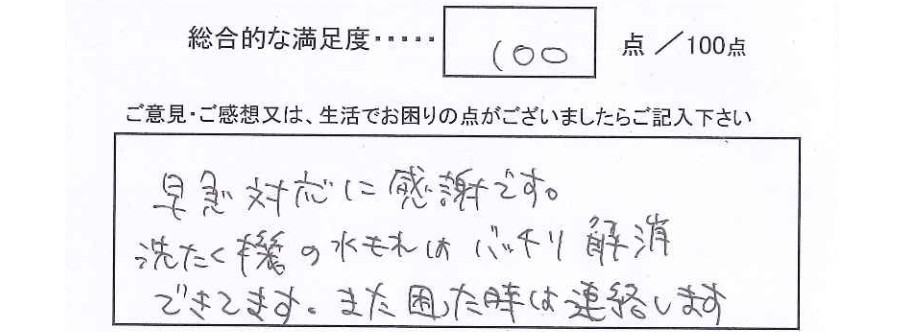 総合的な満足度・・・・・ 100 点 ／100点
ご意見・ご感想又は、生活でお困りの点がございましたらご記入下さい
早急対応に感謝です。
洗たく機の水もれはバッチリ解消
できてます。また困った時は連絡します